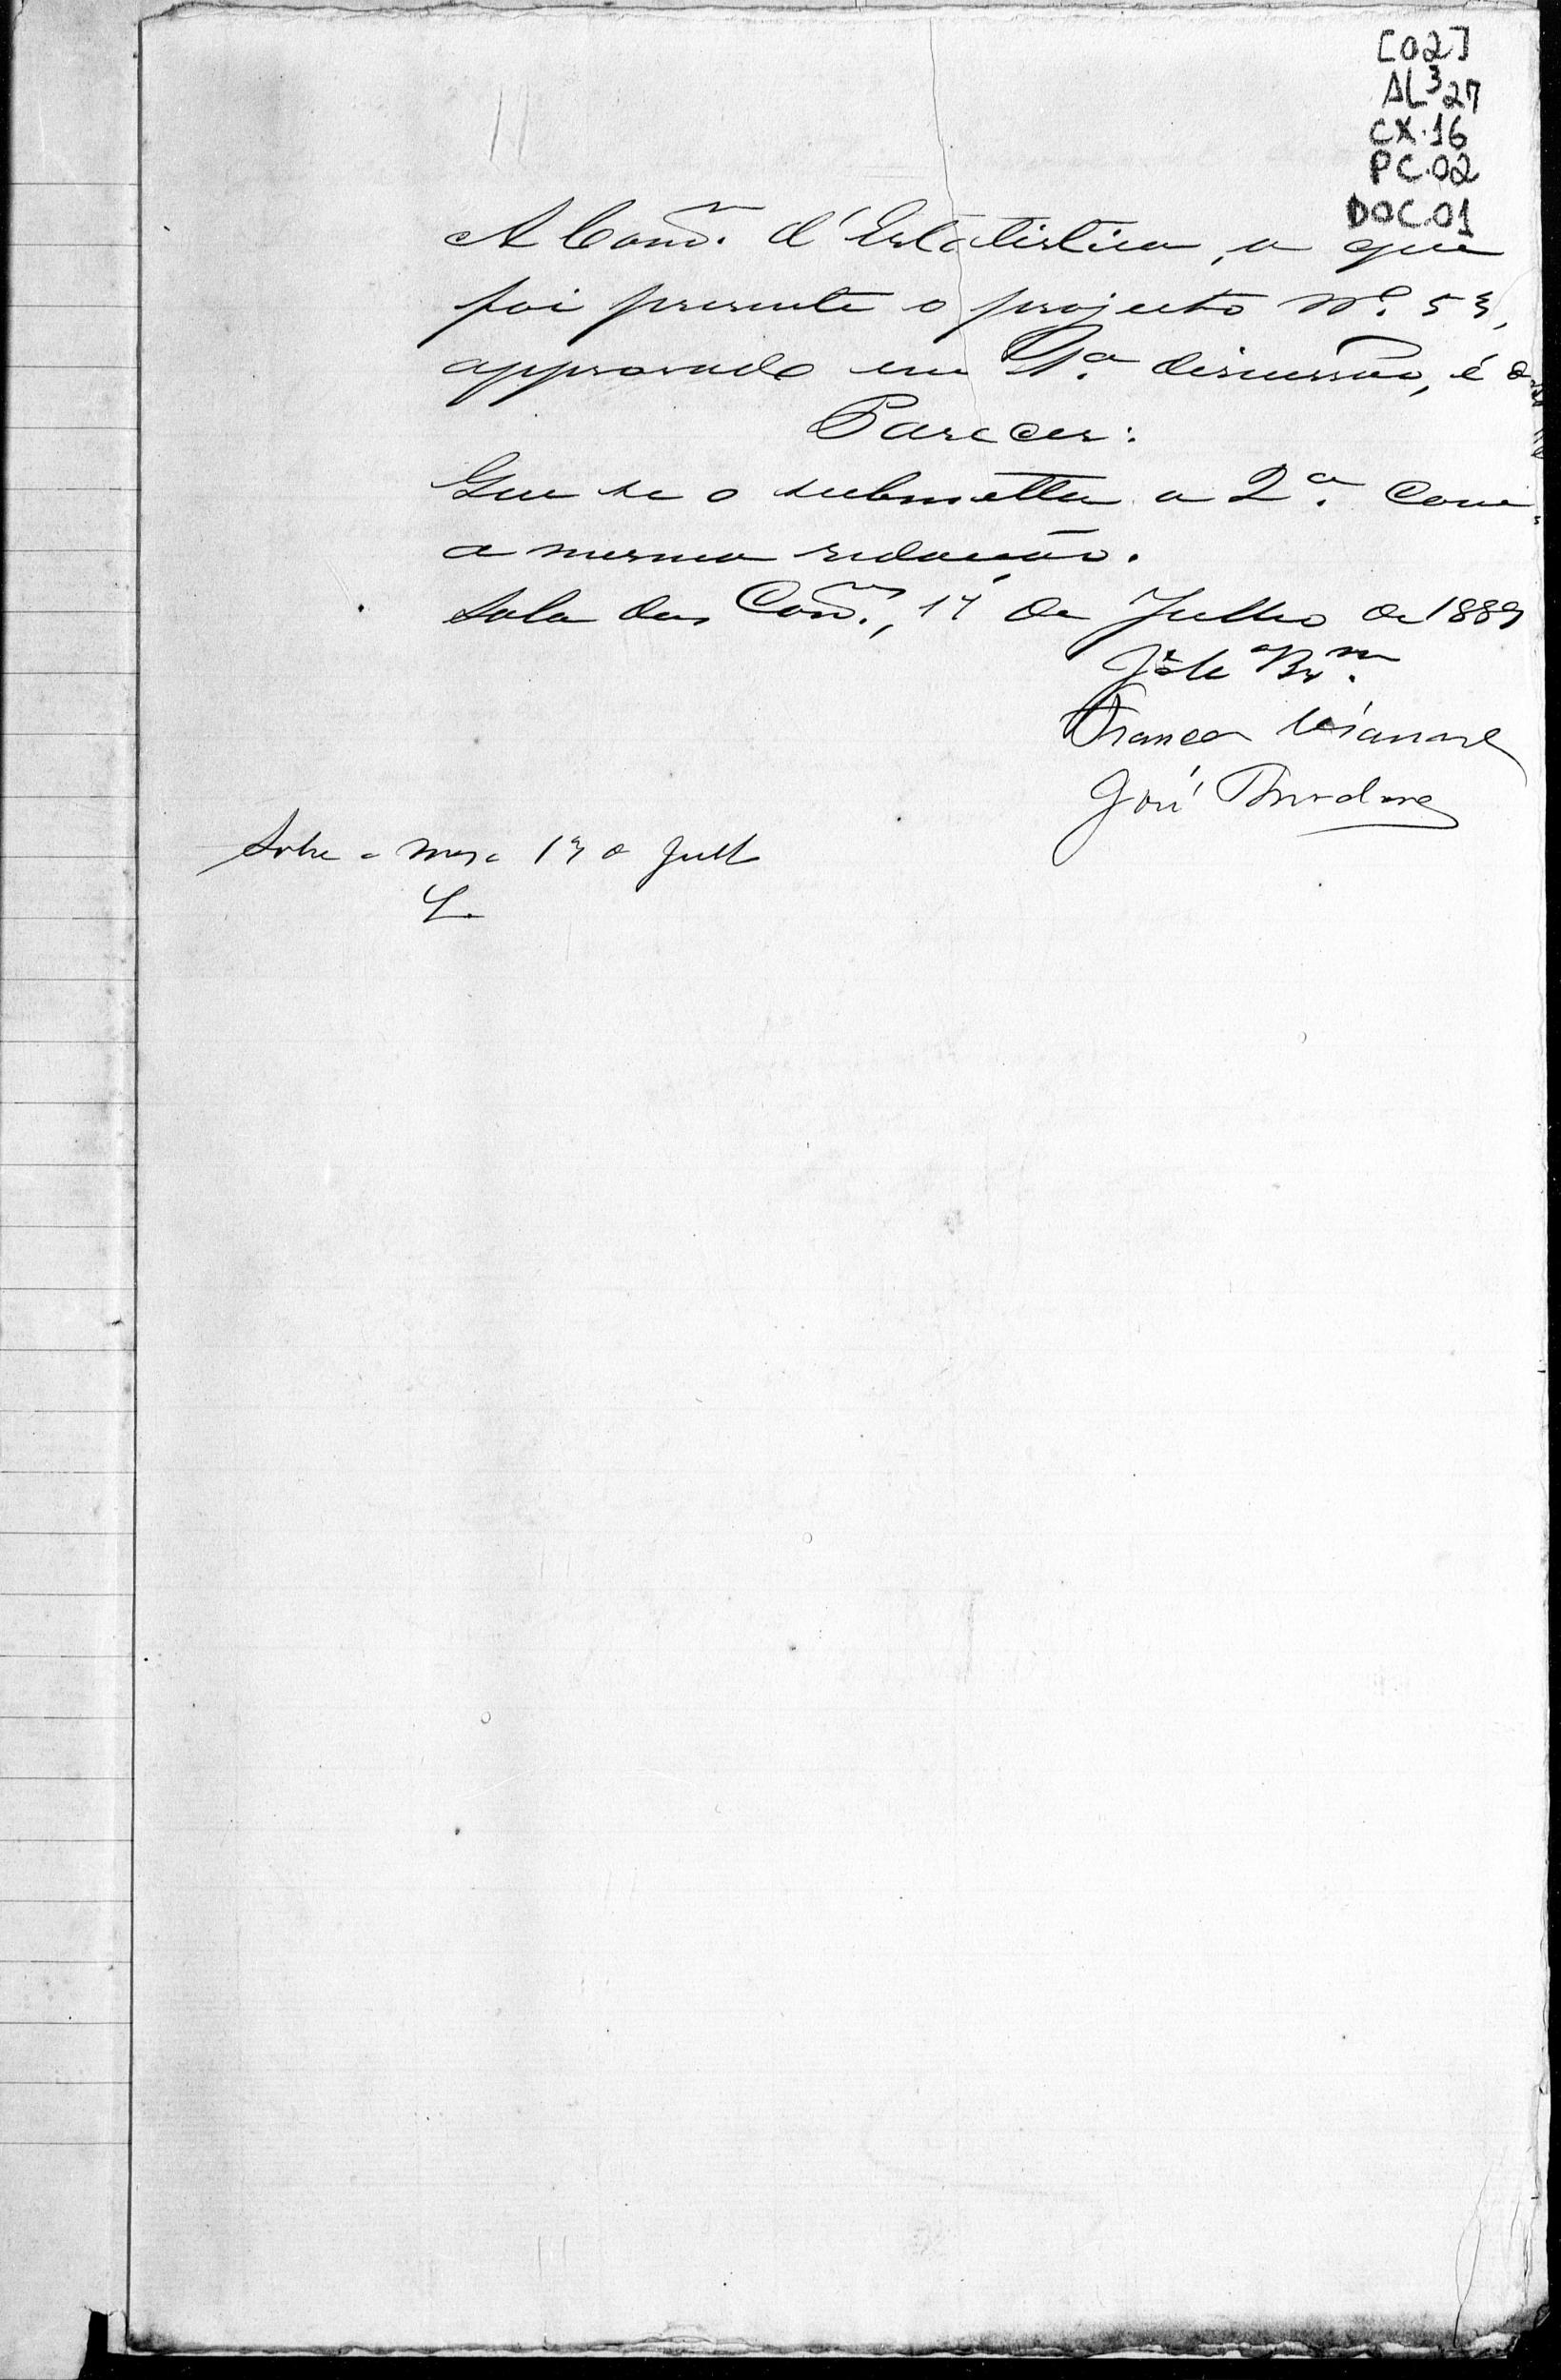 [02]
AL³27
CX.16
PC.02
DOC.01
A Com.ᵐ d'Estatistica, a que
foi presente o projecto Nº. 53,
approvado em 1ª. discussão, é de
Parecer:
Que se o submetta a 2ª. com
a mesma redacção.
Sala das Com., de Julho de 1889
França Vianna
José
Sobre a mesa 13 de Julh